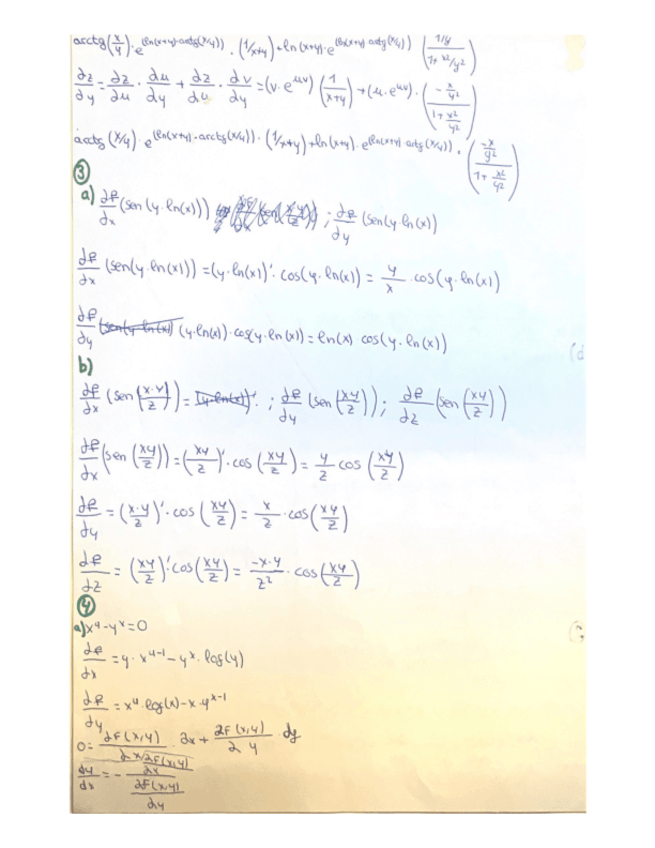 arctg(x/y)·e^(ln(x+y)·arctg(x/y)) · (1/x+y) + ln(x+y)·e^(ln(x+y)·arctg(x/y)) ((1/y)/(1+x²/y²))
∂z/∂y = ∂z/∂u · ∂u/∂y + ∂z/∂u · ∂v/∂y = (v·e^uv) (1/(x+y)) + (u·e^uv) · ((-x/y²)/(1+x²/y²))
arctg(x/y)·e^(ln(x+y)·arctg(x/y)) · (1/x+y) + ln(x+y)·e^(ln(x+y)·arctg(x/y)) · ((-x/y²)/(1+x²/y²))
③
a) df/dx (sen(y·ln(x))) ; df/dy (sen(y·ln(x))
df/dx (sen(y·ln(x))) = (y·ln(x))'·cos(y·ln(x)) = y/x · cos(y·ln(x))
df/dy (y·ln(x))·cos(y·ln(x)) = ln(x) cos(y·ln(x))
b)
df/dx (sen(x·y/z)) = ; df/dy (sen(xy/z)); df/dz (sen(xy/z))
df/dx (sen(xy/z)) = (xy/z)'·cos(xy/z) = y/z cos(xy/z)
df/dy = (x·y/z)'·cos(xy/z) = x/z·cos(xy/z)
df/dz = (xy/z)'·cos(xy/z) = -x·y/z² · cos(xy/z)
④
a) x^y - y^x = 0
df/dx = y·x^(y-1) - y^x·log(y)
df/dy = x^y·log(x) - x·y^(x-1)
0 = ∂F(x,y)/∂x · ∂x + ∂F(x,y)/∂y · dy
dy/dx = - (∂F(x,y)/∂x)/(∂F(x,y)/∂y)